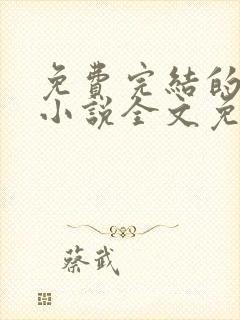 免費完結的
小說全文免
蔡武